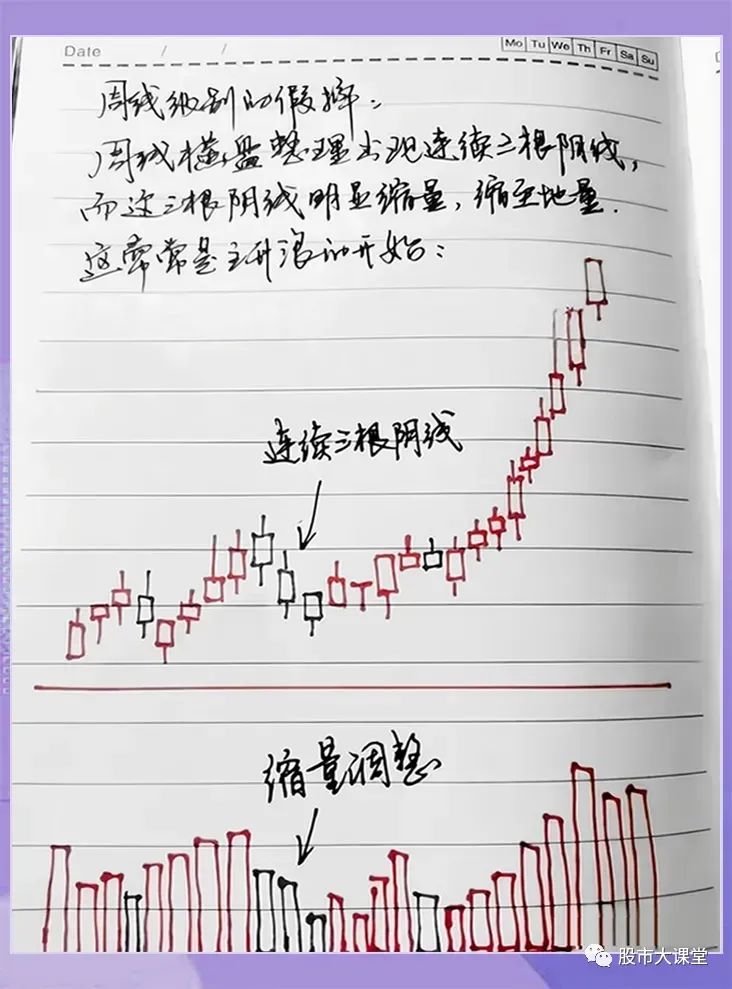 Date / /
Mo Tu We Th Fr Sa Su
周线级别的假摔：
周线横盘整理出现连续三根阴线，
而这三根阴线明显缩量，缩至地量．
这常常是主升浪的开始：
连续三根阴线
缩量调整
股市大课堂